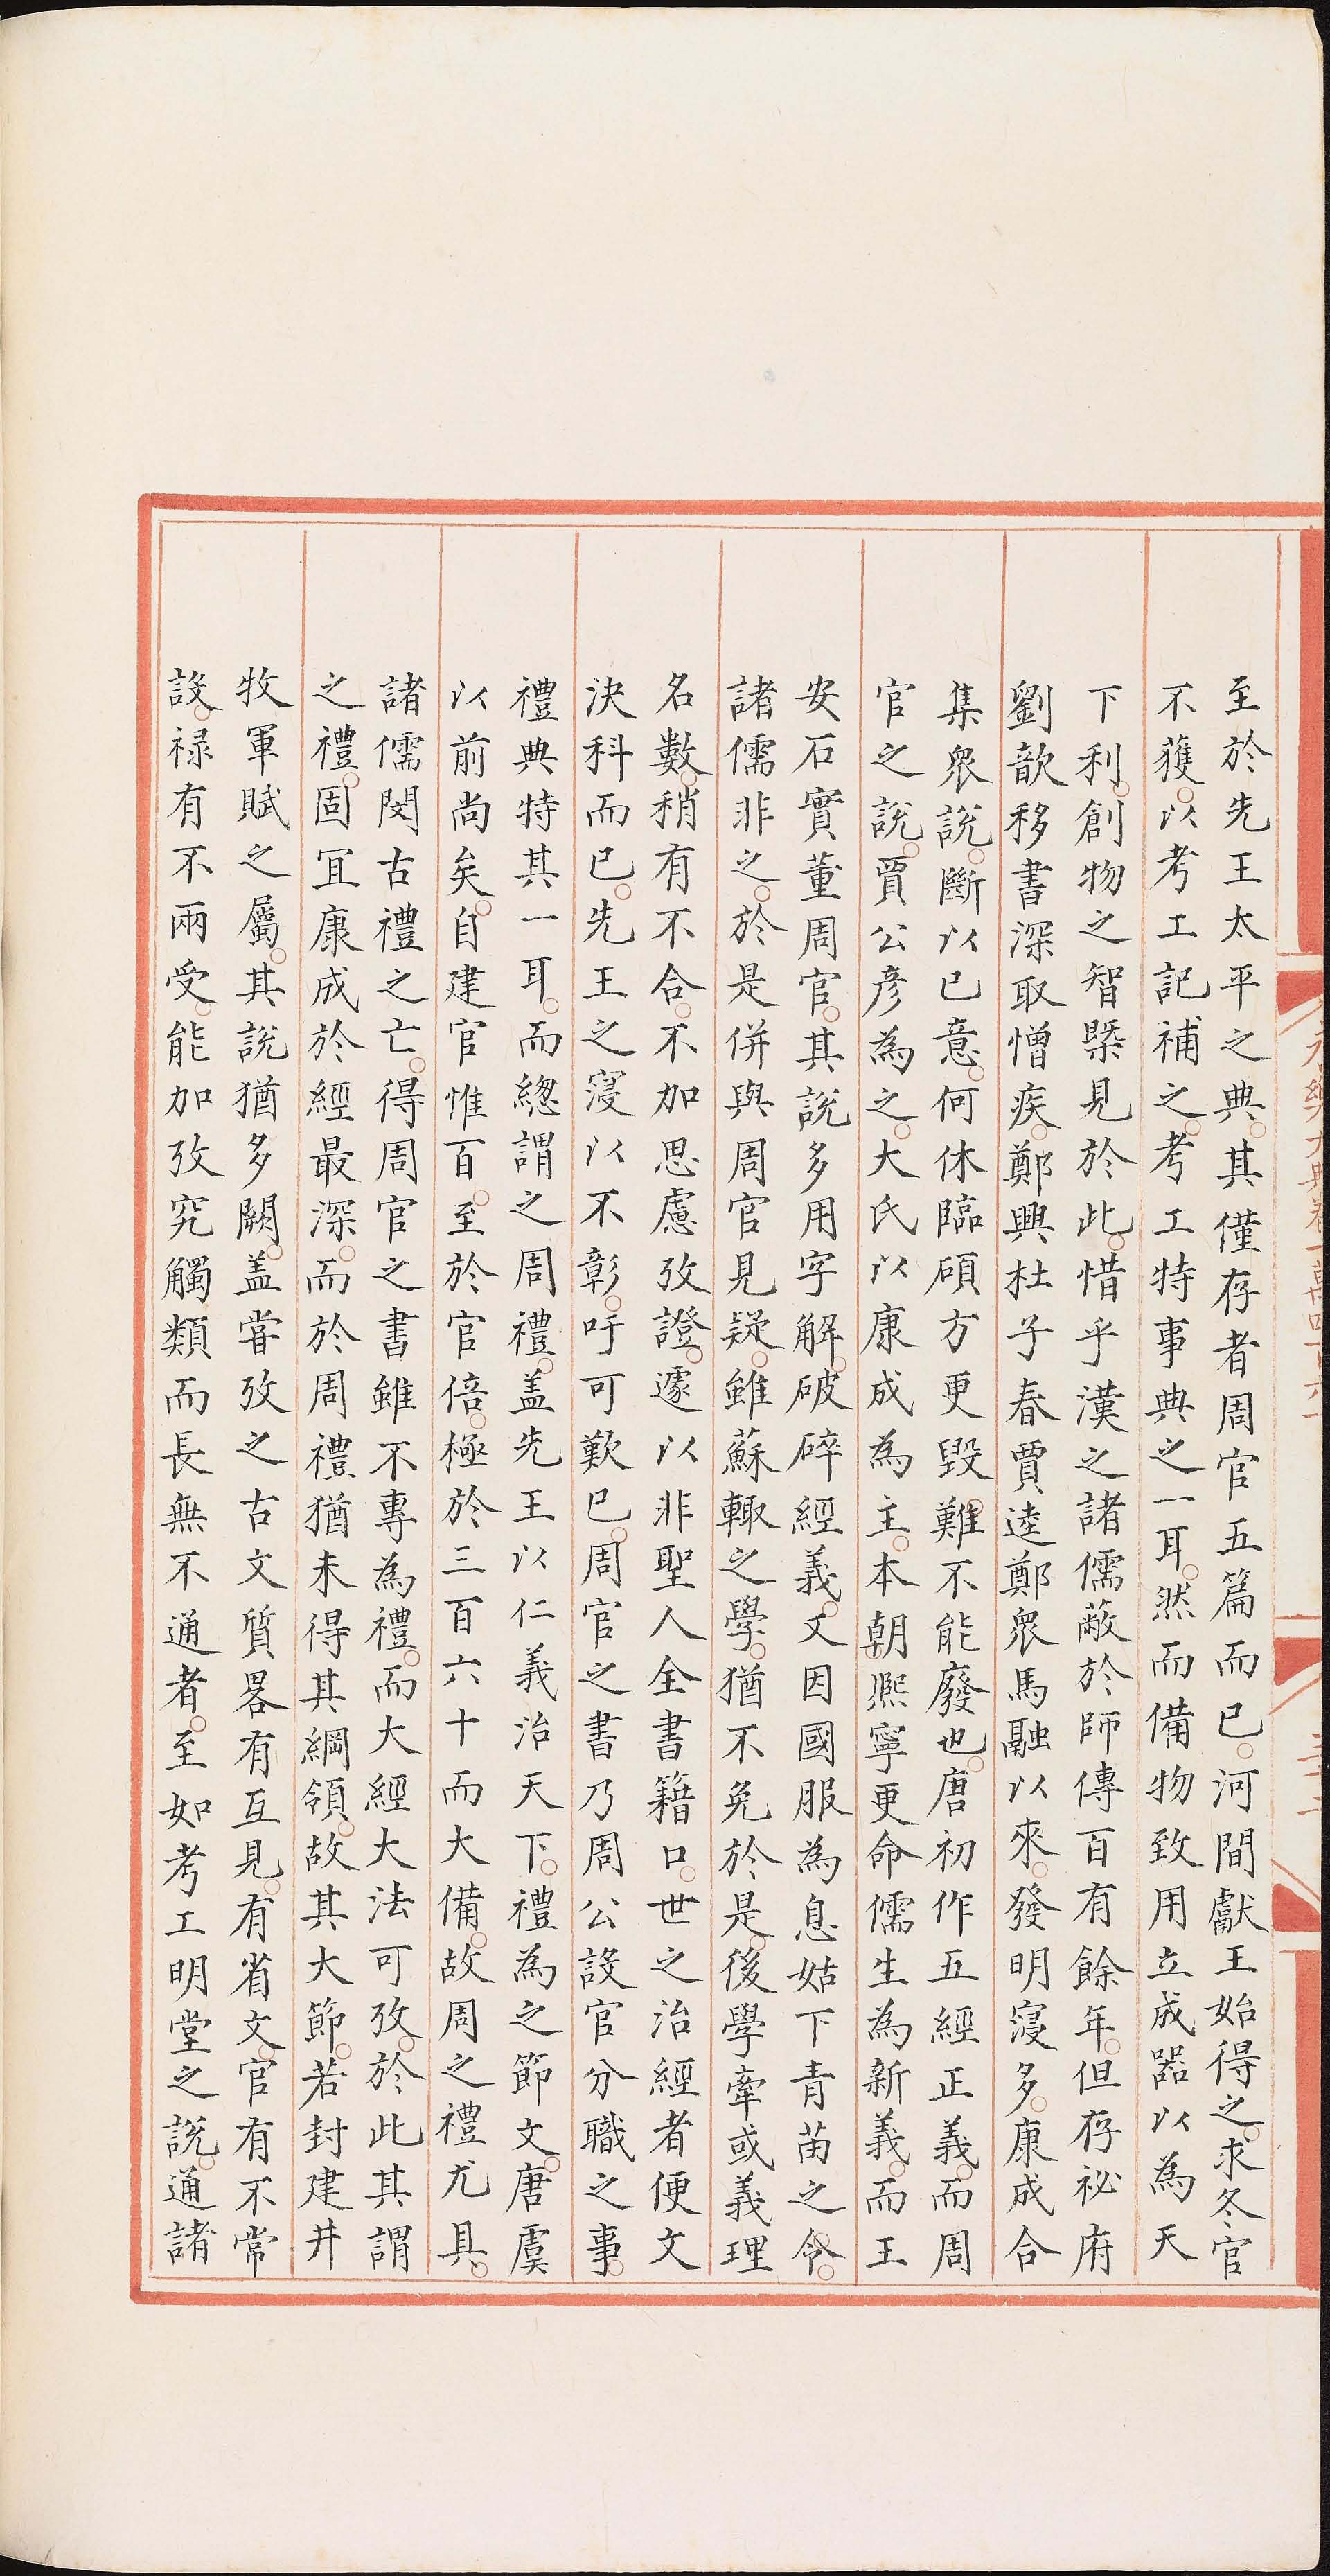 至於先王太平之典其僅存者周官五篇而已河間獻王始得之求冬官
不獲以考工記補之考工特事典之一耳然而備物致用立成器以為天
下利創物之智槩見於此惜乎漢之諸儒蔽於師傳百有餘年但存祕府
劉歆移書深取憎疾鄭興杜子春賈逵鄭眾馬融以來發明寖多康成合
集眾說斷以已意何休臨碩方更毀難不能廢也唐初作五經正義而周
官之說賈公彦為之大氏以康成為主本朝熈寧更命儒生為新義而王
安石實董周官其說多用字解破碎經義又因國服為息姑下青苗之令
諸儒非之於是併與周官見疑雖蘇轍之學猶不免於是後學牽或義理
名數稍有不合不加思慮攷證遽以非聖人全書籍口世之治經者便文
決科而已先王之寖以不彰吁可歎已周官之書乃周公設官分職之事
禮典特其一耳而緫謂之周禮盖先王以仁義治天下禮為之節文唐虞
以前尚矣自建官惟百至於官倍極於三百六十而大備故周之禮尤具
諸儒閔古禮之亡得周官之書雖不專為禮而大經大法可攷於此其謂
之禮固宜康成於經最深而於周禮猶未得其綱領故其大節若封建井
牧軍賦之屬其說猶多闕盖甞攷之古文質畧有互見有省文官有不常
設禄有不兩受能加攷究觸類而長無不通者至如考工明堂之說通諸